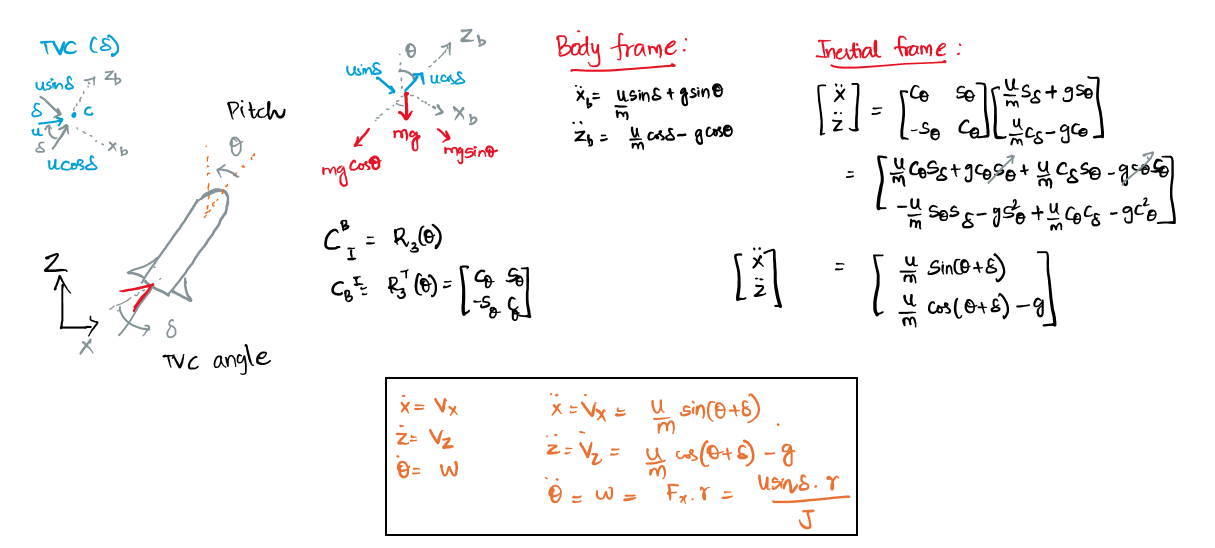 TVC (δ)
Z_b
usinδ
δ
c
u
δ
x_b
ucosδ
Pitch
θ
Z
X
δ
TVC angle
θ
Z_b
usinδ
ucosδ
X_b
mg
mgcosθ
mgsinθ
C_I^B = R_3(θ)
C_B^I = R_3^T(θ) = [cθ sθ
-sθ cθ]
Body frame:
ẍ_b = u/m sinδ + gsinθ
z̈_b = u/m cosδ - gcosθ
Inertial frame:
[ẍ z̈] = [cθ sθ; -sθ cθ] [u/m sδ + gsθ; u/m cδ - gcθ]
= [u/m cθsδ + gcθsθ + u/m cδsθ - gsθcθ
-u/m sθsδ - gs²θ + u/m cθcδ - gc²θ]
[ẍ z̈] = [u/m sin(θ+δ)
u/m cos(θ+δ) - g]
ẋ = Vx
ż = Vz
θ̇ = w
ẍ = V̇x = u/m sin(θ+δ).
z̈ = V̇z = u/m cos(θ+δ) - g
θ̈ = w = Fx.r = usinδ.r / J